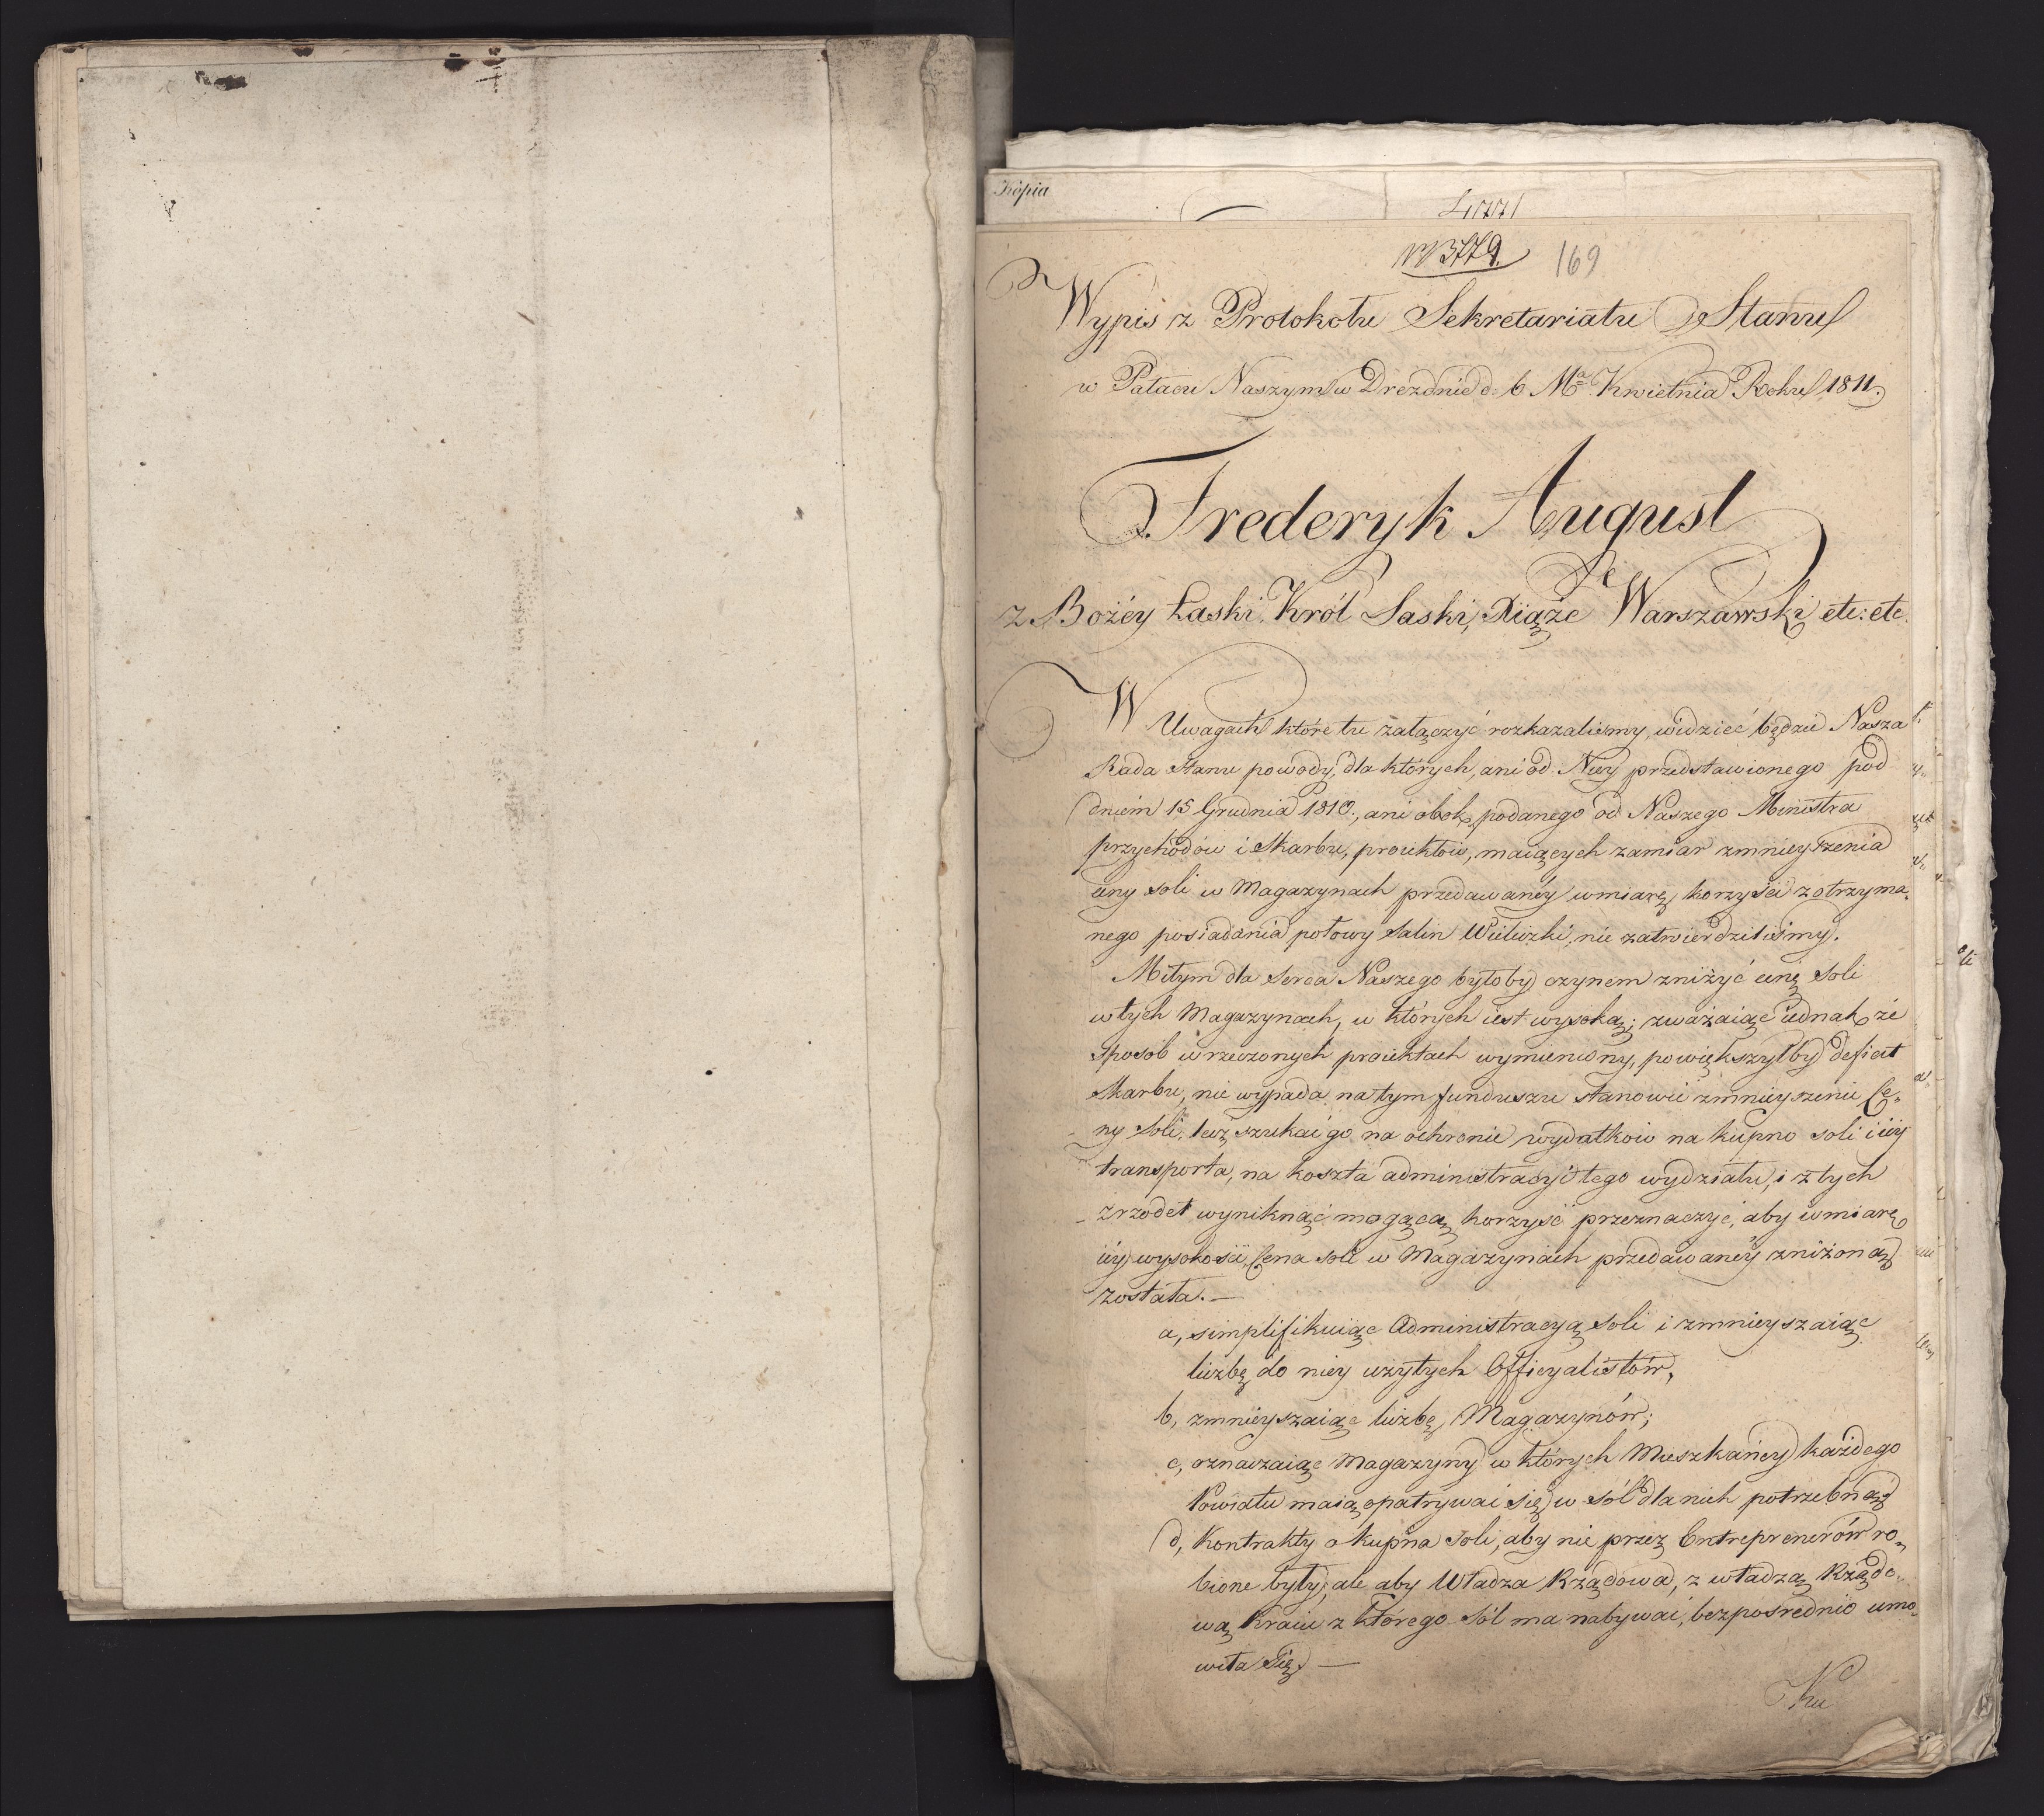 Kopia
N 3779. 169
Wypis z Protokołu Sekretariatu Stanu
w Pałacu Naszym w Dreźnie d: 6 Mca Kwietnia Roku 1811.
Frederyk August
z Bożéy Łaski, Król Saski, Xiąże Warszawski etc: etc.
W Uwagach które tu załączyć rozkazalismy, widzieć będzie Nasza
Rada Stanu powody, dla których, ani od Niey przedstawionego pod
dniem 15 Grudnia 1810., ani obok podanego od Naszego Ministra
przychodów i Skarbu, proiektów, maiących zamiar zmnieyszenia
ceny soli w Magazynach przedawanéy w miarę korzyści z otrzyma„
nego posiadania połowy Salin Wieliczki, nie zatwierdzilismy.
Miłym dla Serca Naszego byłoby czynem zniżyć cenę Soli
w tych Magazynach, w których iest wysoką; zważaiąc iednak że
sposób w rzeczonych proiektach wymieniony, powiększyłby deficit
Skarbu, nie wypada na tym funduszu stanowić zmnieyszenie Ce„
ny Soli, lecz szukać go na ochronie wydatków na kupno soli i iéy
transporta, na koszta administracyi tego wydziału, i z tych
zrzodeł wyniknąć mogącą korzyść przeznaczyć, aby w miarę
iéy wysokości, Cena soli w Magazynach przedawanéy zniżoną
została. —
a, simplifikuiąc Administracyą Soli i zmnieyszaiąc
liczbę do niey użytych Officyalistów,
b, zmnieyszaiąc liczbę Magazynów;
c, oznaczaiąc Magazyny w których Mieszkańcy każdego
Powiatu maią opatrywać się w sól dla nich potrzebną
d, Kontrakty o kupna Soli, aby nie przez Entreprenerów ro„
bione były, ale aby Władza Rządowa, z władzą Rządo„
wą Kraiu z którego Sól ma nabywać, bezpośrednio umo„
wiła się. —
Ku